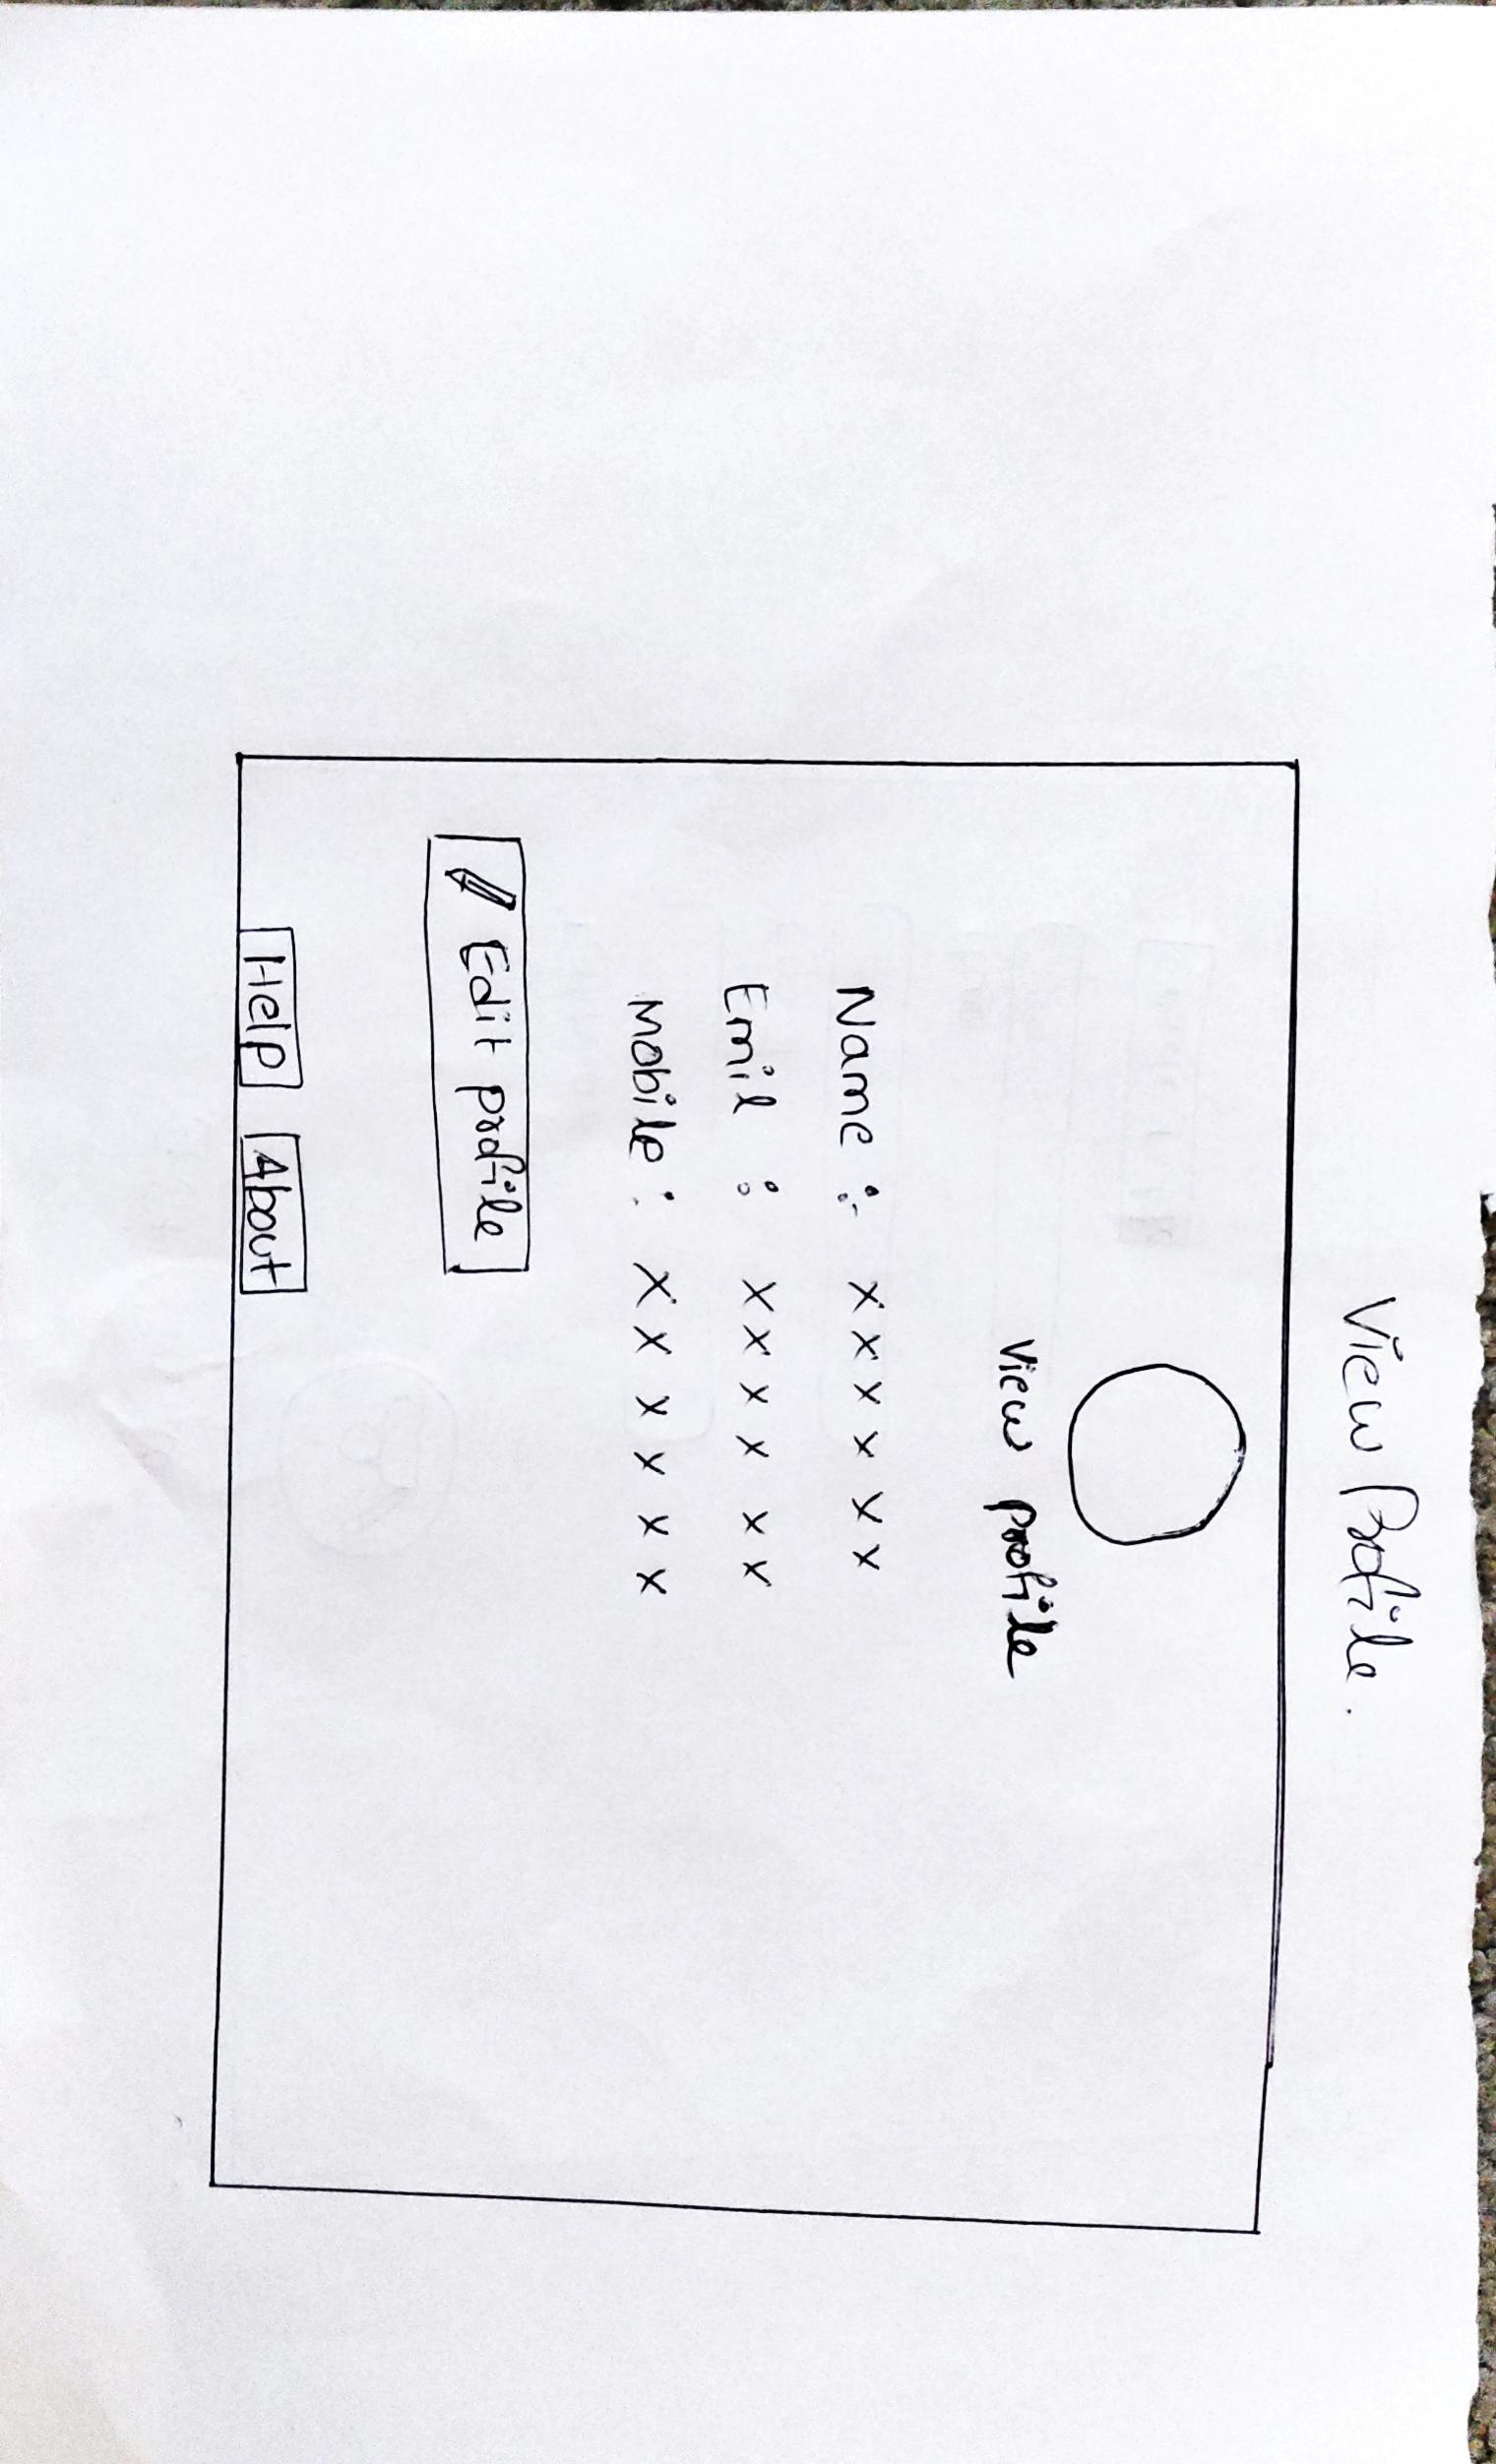 View Profile.
View profile
Name : x x x x x x
Emil : x x x x x x
Mobile : x x x x x x
Edit profile
Help About